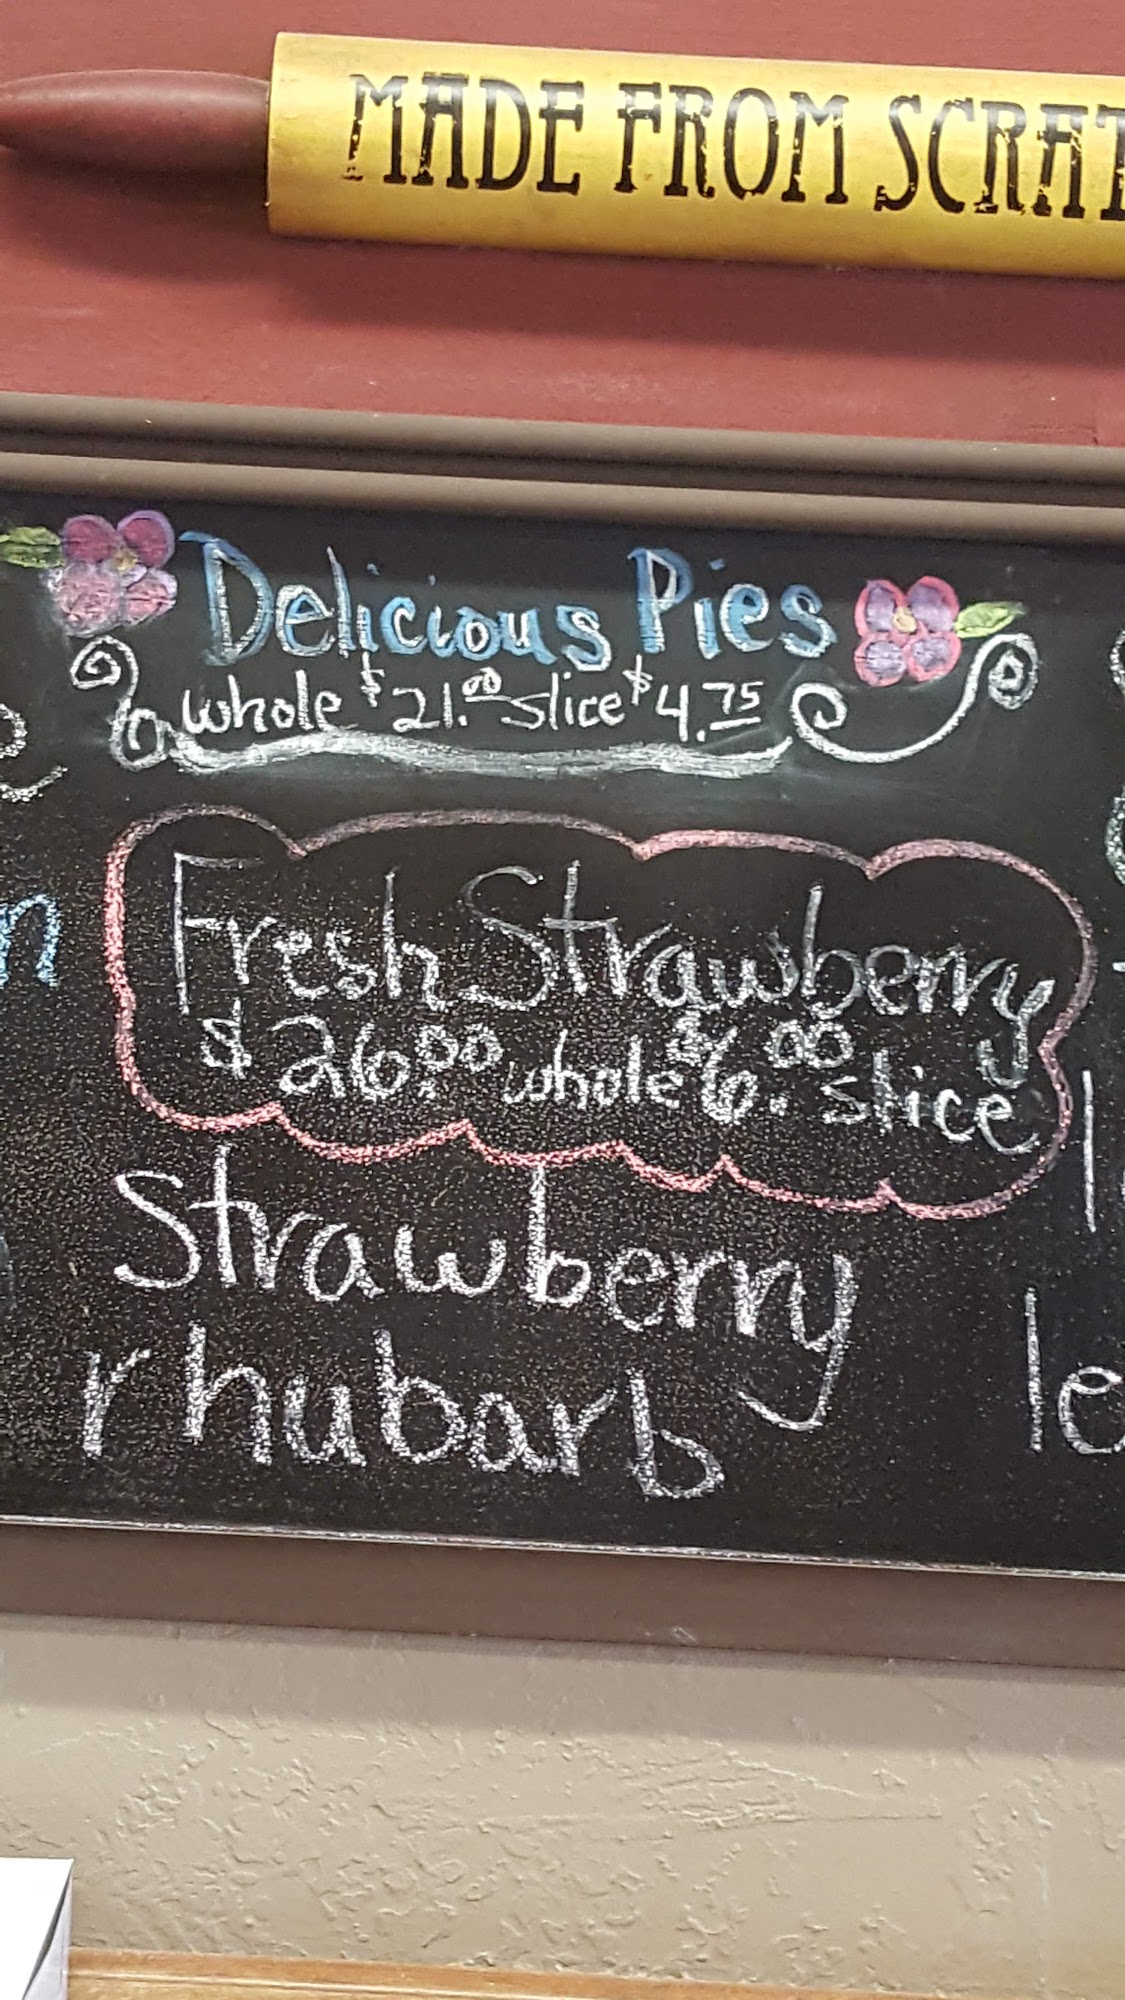 MADE FROM SCRAT
Delicious Pies
whole $21.00 slice $4.75
Fresh Strawberry
$26.00 whole $6.00 slice
Strawberry
rhubarb
le